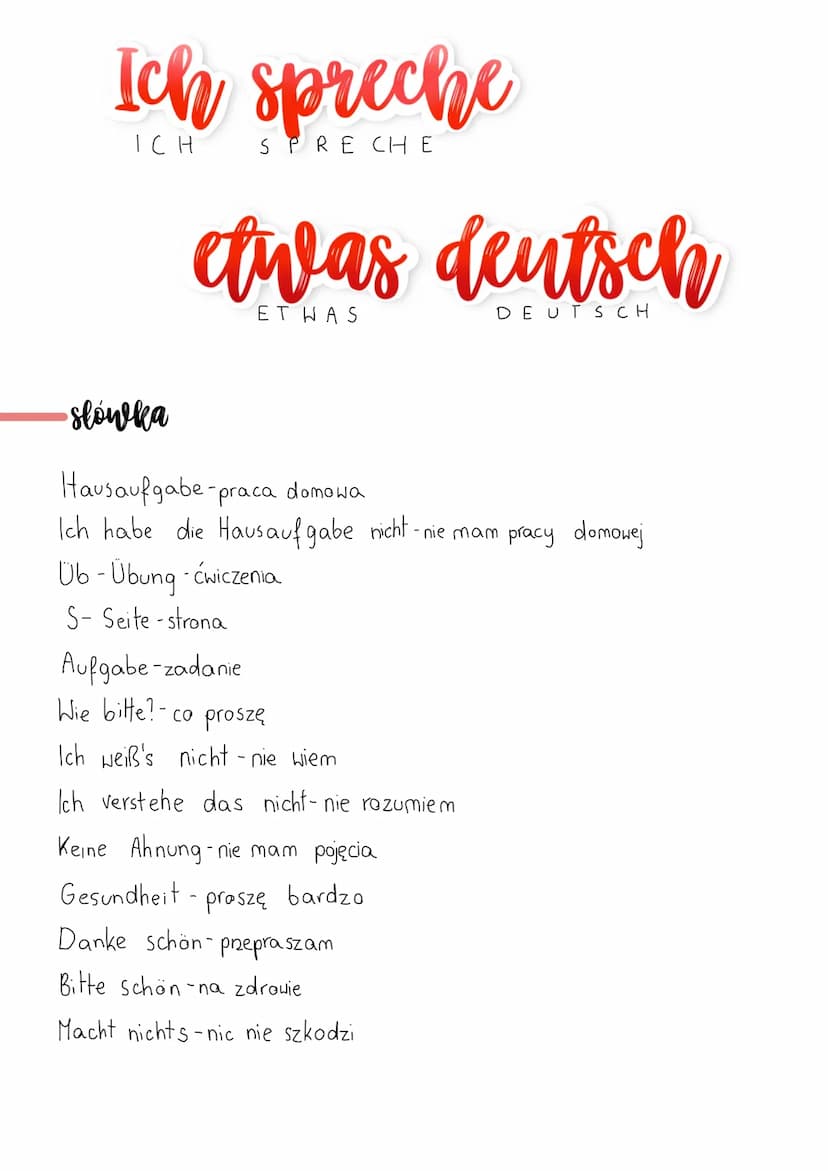 Ich spreche
ICH SPRECHE
etwas deutsch
ETWAS DEUTSCH
słówka
Hausaufgabe-praca domowa
Ich habe die Hausaufgabe nicht-nie mam pracy domowej
Üb-Übung-ćwiczenia
S-Seite-strona
Aufgabe-zadanie
Wie bitte?-co proszę
Ich weiß's nicht-nie wiem
Ich verstehe das nicht-nie rozumiem
Keine Ahnung-nie mam pojęcia
Gesundheit-proszę bardzo
Danke schön-przepraszam
Bitte schön-na zdrowie
Macht nichts-nic nie szkodzi